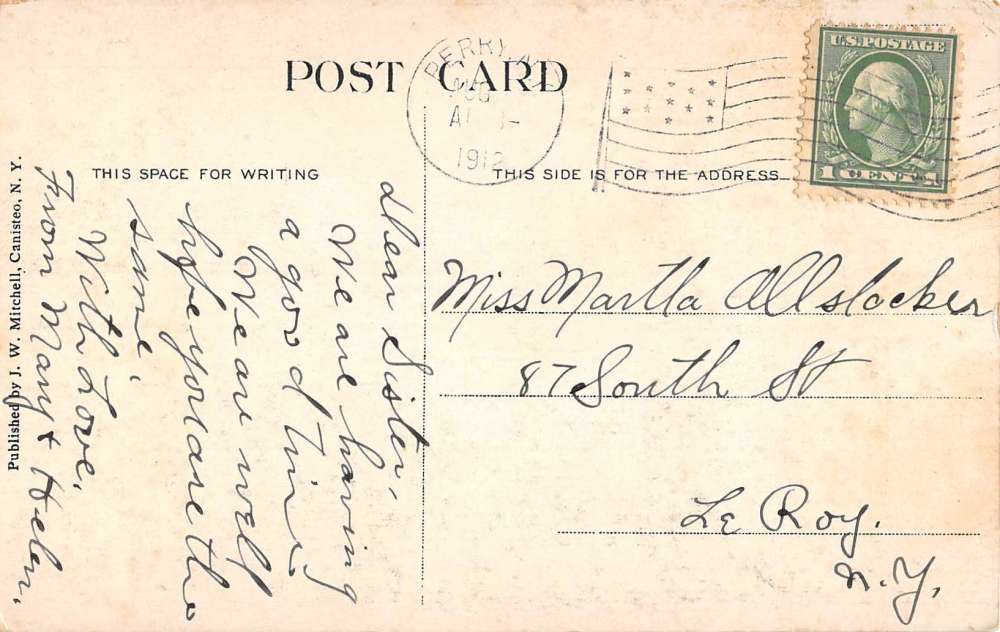 POST CARD
PERRY, N.Y.
AUG
1912
U.S. POSTAGE
1 CENT 1
THIS SPACE FOR WRITING
THIS SIDE IS FOR THE ADDRESS
Published by J. W. Mitchell, Canisteo, N. Y.
Dear Sister,
We are having
a good time
We are well
hope you are the
same.
With Love,
From Mary & Helen.
Miss Martha Allslocker
87 South St
Le Roy.
N.Y.